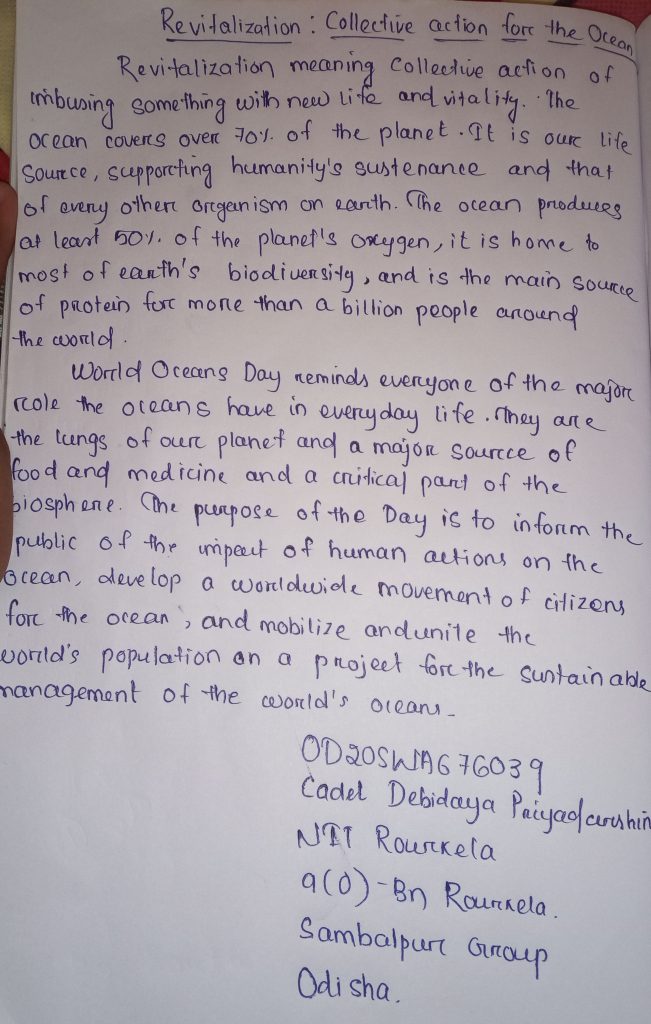 Revitalization : Collective action for the Ocean
Revitalization meaning Collective action of
imbusing something with new life and vitality. The
ocean covers over 70% of the planet. It is our life
source, supporting humanity's sustenance and that
of every other organism on earth. The ocean produces
at least 50% of the planet's oxygen, it is home to
most of earth's biodiversity, and is the main source
of protein for more than a billion people around
the world.
World Oceans Day reminds everyone of the major
role the oceans have in everyday life. They are
the lungs of our planet and a major source of
food and medicine and a critical part of the
biosphere. The purpose of the Day is to inform the
public of the impact of human actions on the
Ocean, develop a worldwide movement of citizens
for the ocean, and mobilize and unite the
world's population on a project for the sustainable
management of the world's oceans.
OD20SWA676039
Cadet Debidaya Priyadarshin
NIT Rourkela
9(O)-Bn Rourkela.
Sambalpur Group
Odisha.